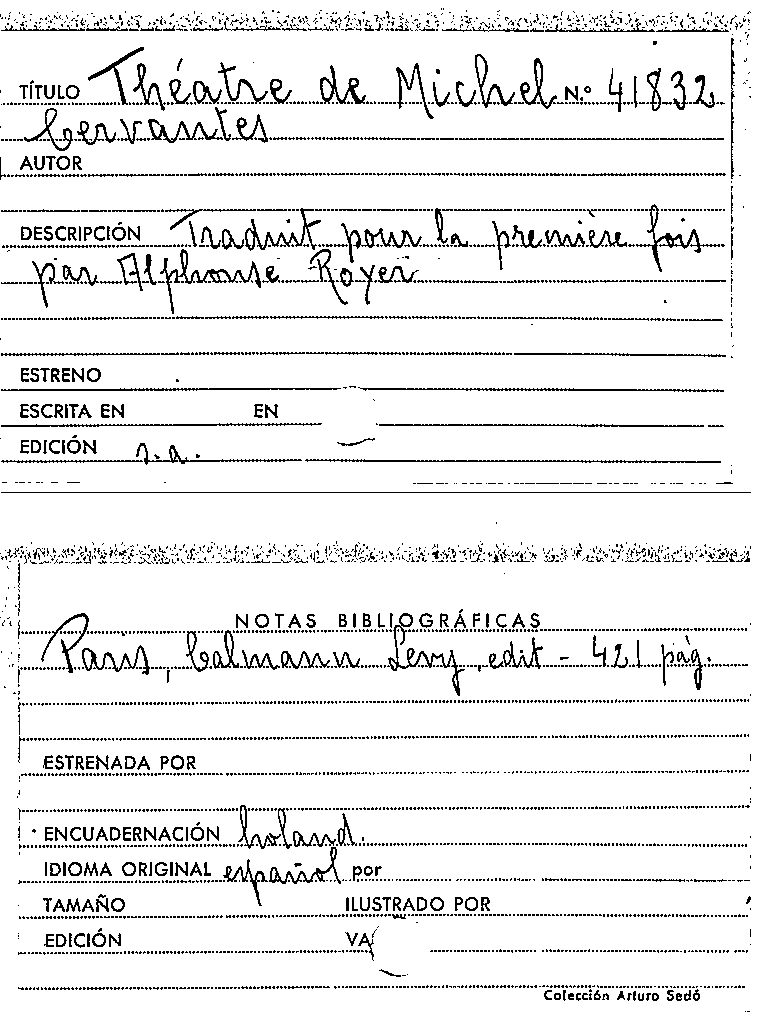 TÍTULO Théatre de Michel N.º 41832
Cervantes
AUTOR
DESCRIPCIÓN Traduit pour la première fois
par Alphonse Royer
ESTRENO
ESCRITA EN EN
EDICIÓN s.a.
NOTAS BIBLIOGRÁFICAS
Paris, Calmann Levy, edit - 421 pág.
ESTRENADA POR
ENCUADERNACIÓN holand.
IDIOMA ORIGINAL español por
TAMAÑO ILUSTRADO POR
EDICIÓN VA
Colección Arturo Sedó